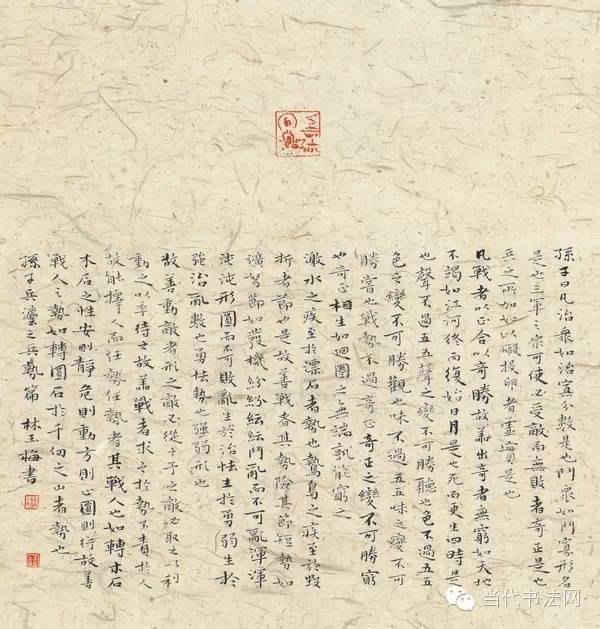 孫子曰凡治衆如治寡分數是也鬥衆如鬥寡形名
是也三軍之衆可使必受敵而無敗者奇正是也
兵之所加如以碬投卵者虛實是也
凡戰者以正合以奇勝故善出奇者無窮如天地
不竭如江河終而復始日月是也死而更生四時是
也聲不過五五聲之變不可勝聽也色不過五五
色之變不可勝觀也味不過五五味之變不可
勝嘗也戰勢不過奇正奇正之變不可勝窮
也奇正相生如迴圈之無端孰能窮之
激水之疾至於漂石者勢也鷙鳥之疾至於毀
折者節也是故善戰者其勢險其節短勢如
彍弩節如發機紛紛紜紜鬥亂而不可亂渾渾
沌沌形圓而不可敗亂生於治怯生於勇弱生於
強治亂數也勇怯勢也強弱形也
故善動敵者形之敵必從之予之敵必取之以利
動之以卒待之故善戰者求之於勢不責於人
故能擇人而任勢任勢者其戰人也如轉木石
木石之性安則靜危則動方則止圓則行故善
戰人之勢如轉圓石於千仞之山者勢也
孫子兵灋之兵勢篇 林玉梅書
当代书法网